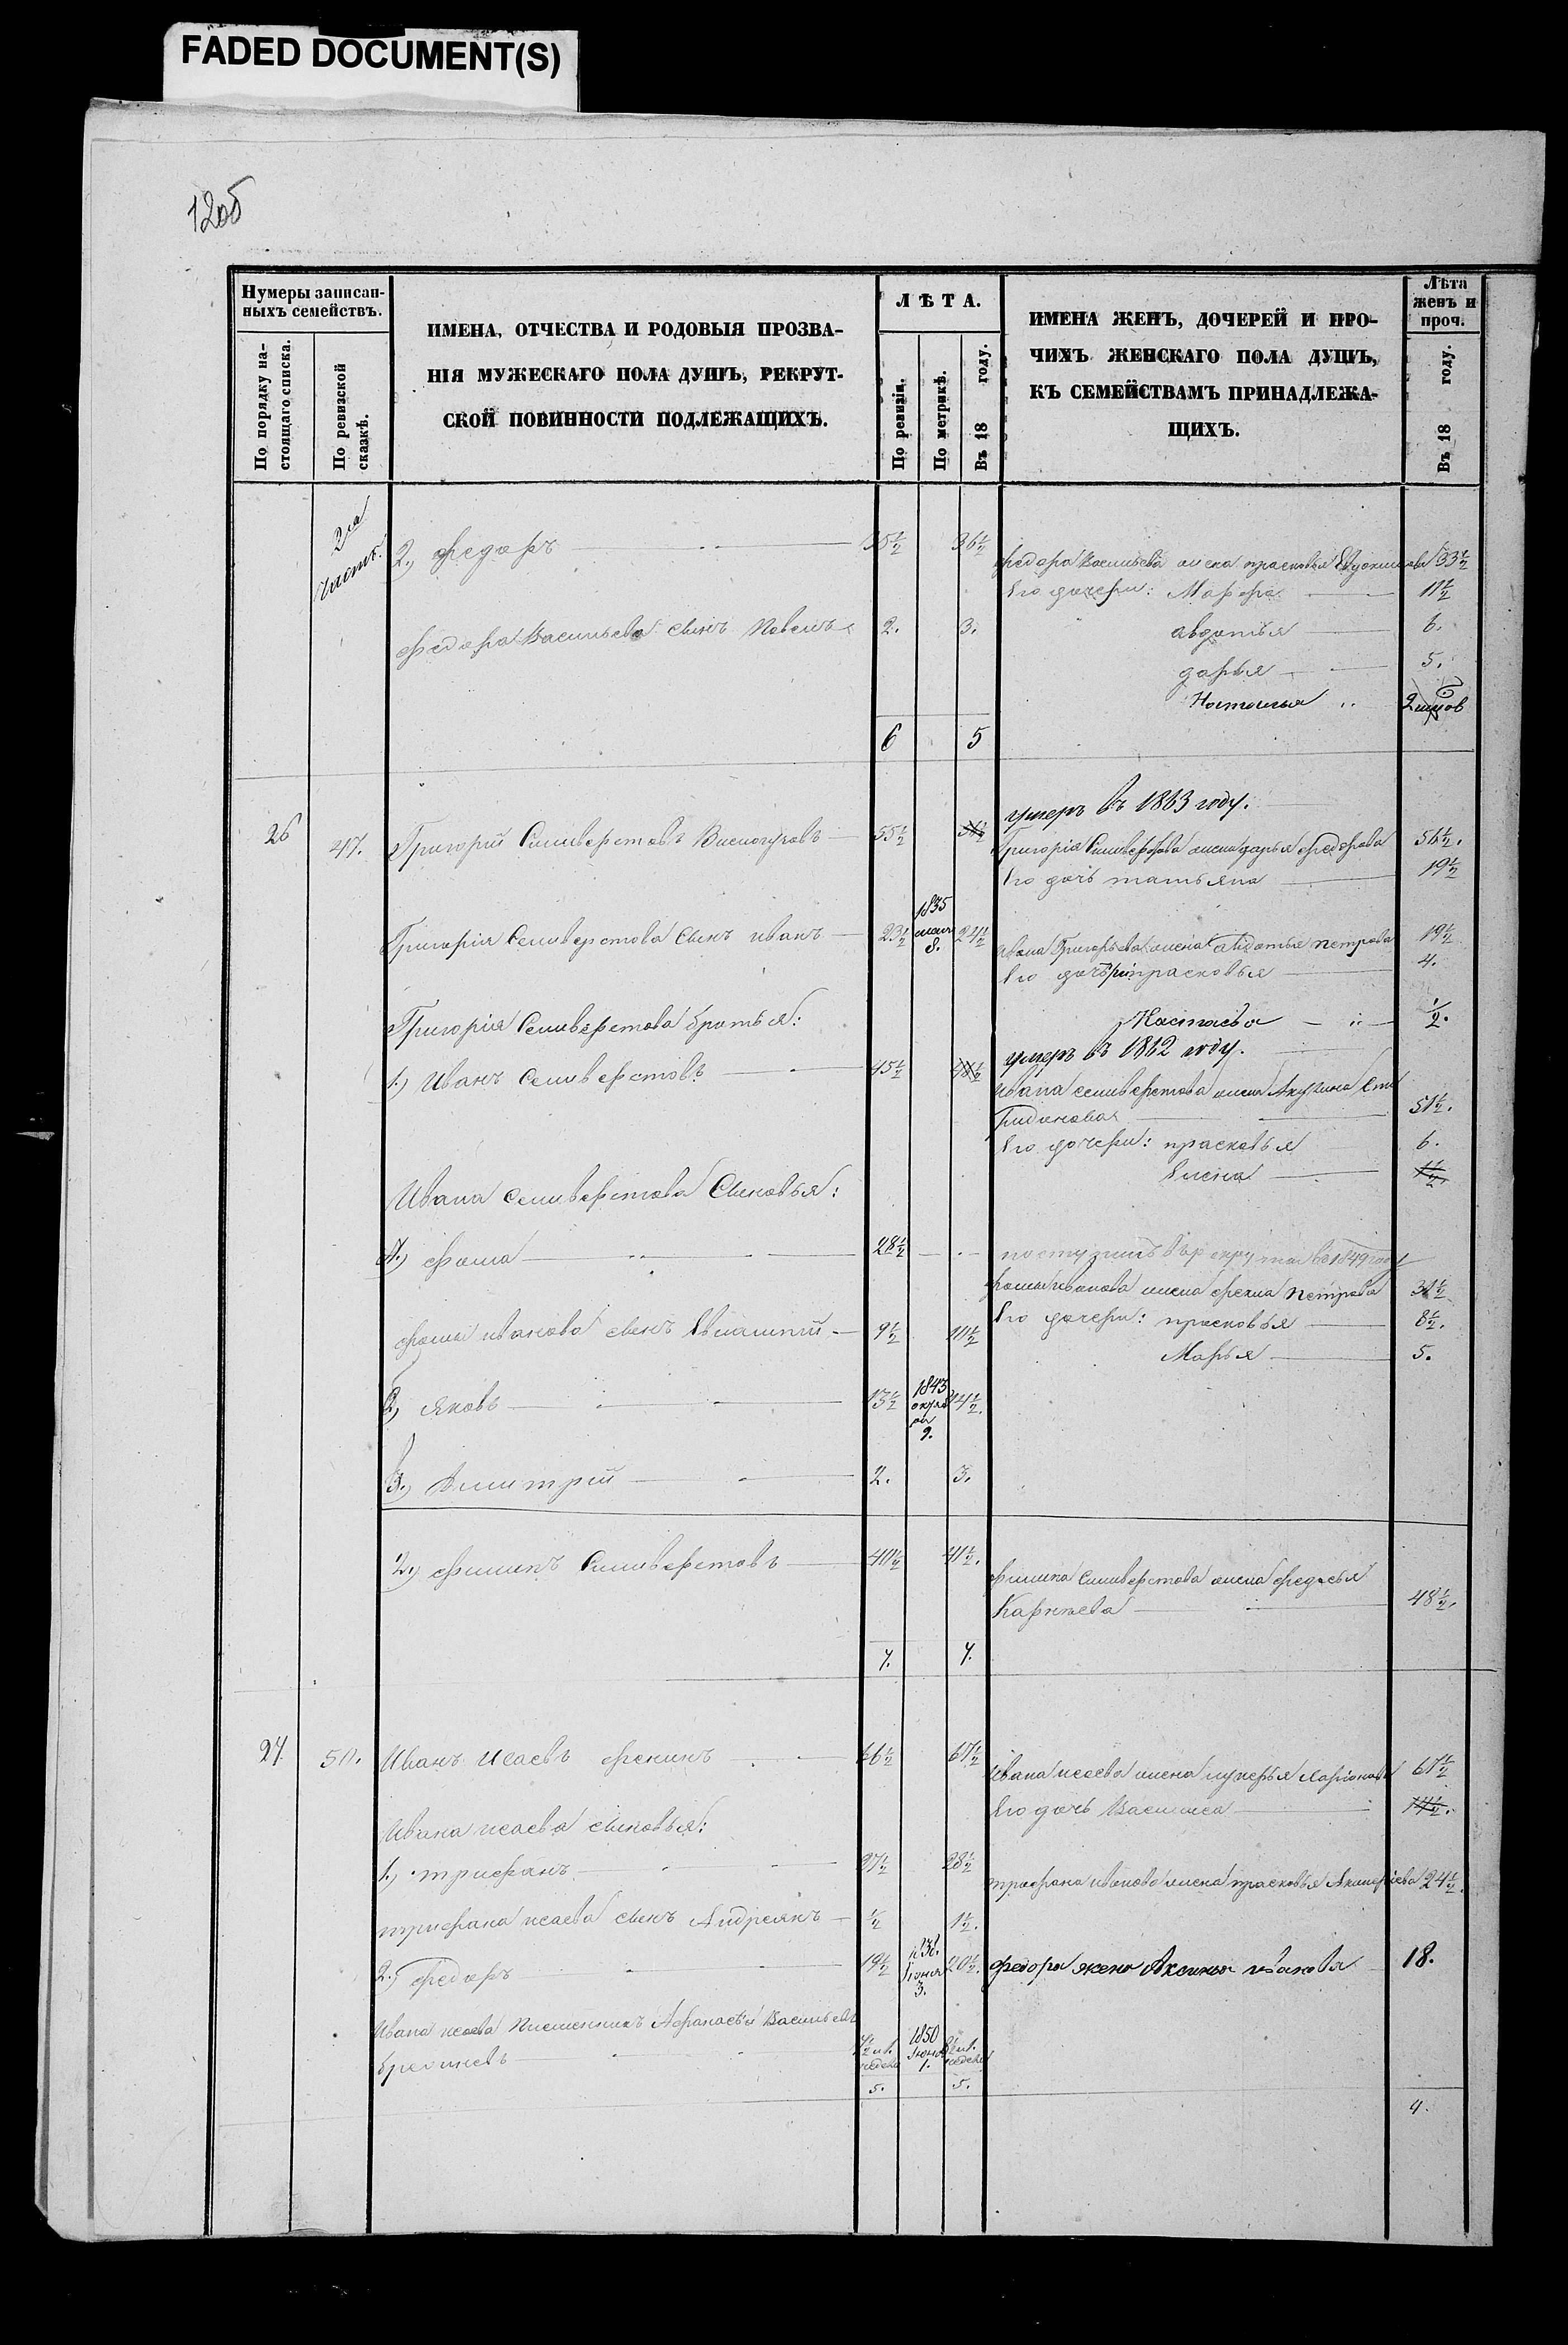 FADED DOCUMENT(S)
12об
Нумеры записан-
ныхъ семействъ.
По порядку на-
стоящаго списка.
По ревизской
сказкѣ.
ИМЕНА, ОТЧЕСТВА И РОДОВЫЯ ПРОЗВА-
НІЯ МУЖЕСКАГО ПОЛА ДУШЪ, РЕКРУТ-
СКОЙ ПОВИННОСТИ ПОДЛЕЖАЩИХЪ.
ЛѢТА.
По ревизіи.
По метрикѣ.
Въ 18 году.
ИМЕНА ЖЕНЪ, ДОЧЕРЕЙ И ПРО-
ЧИХЪ ЖЕНСКАГО ПОЛА ДУШЪ,
КЪ СЕМЕЙСТВАМЪ ПРИНАДЛЕЖА-
ЩИХЪ.
Лѣта
женъ и
проч.
Въ 18 году.
2я
часть.
2, Федоръ 35½ 36½
Федора Васильева жена прасковья Евдокимова 33½
Его дочери: Марфа 11½
Федора Васильева сынъ Павелъ 2. 3.
авдотья 6.
дарья 5.
Настасья 2
6 5
умеръ въ 1863 году.
26 47. Григорій Селиверстовъ 55½
Григорія Селиверстова жена дарья Федорова 56½.
Его дочь татьяна 19½
Григорія Селиверстова сынъ иванъ 23½ 1835 8. 24½
Ивана Григорьева жена авдотья петрова 19½
Его дочери прасковья 4.
Григорія Селиверстова братья:
Настасья ½.
умеръ въ 1862 году.
1, Иванъ Селиверстовъ 45½
Ивана селиверстова жена Акулина
51½.
Его дочери: прасковья 6.
Елена
Ивана селиверстова Сыновья:
1, фома 28½
поступилъ въ рекруты въ 1849 году
Фомы иванова жена фекла петрова 31½
Его дочери: прасковья 8½.
фомы иванова сынъ 9½ 10½
Марья 5.
2, яковъ 13½ 1843 октяб
ря 9. 14½.
3, Дмитрій 2. 3.
2, филипъ Селиверстовъ 40½ 41½.
Филипа Селиверстова жена федосья
Карпѣева 48½.
7. 7.
27 50. Иванъ Исаевъ фекинъ 66½ 67½
Ивана исаева жена лукерья ларіонова 67½
Его дочь Василиса
Ивана исаева сыновья:
1, трифанъ 27½ 28½
трифана иванова жена прасковья 24½.
трифана исаева сынъ Андреянъ ½ 1½.
2, федоръ 19½ 3. 20½.
федора жена Аксинья иванова 18.
Ивана исаева Афанасій Васильевъ
1850 Іюня 1.
5. 5.
4.